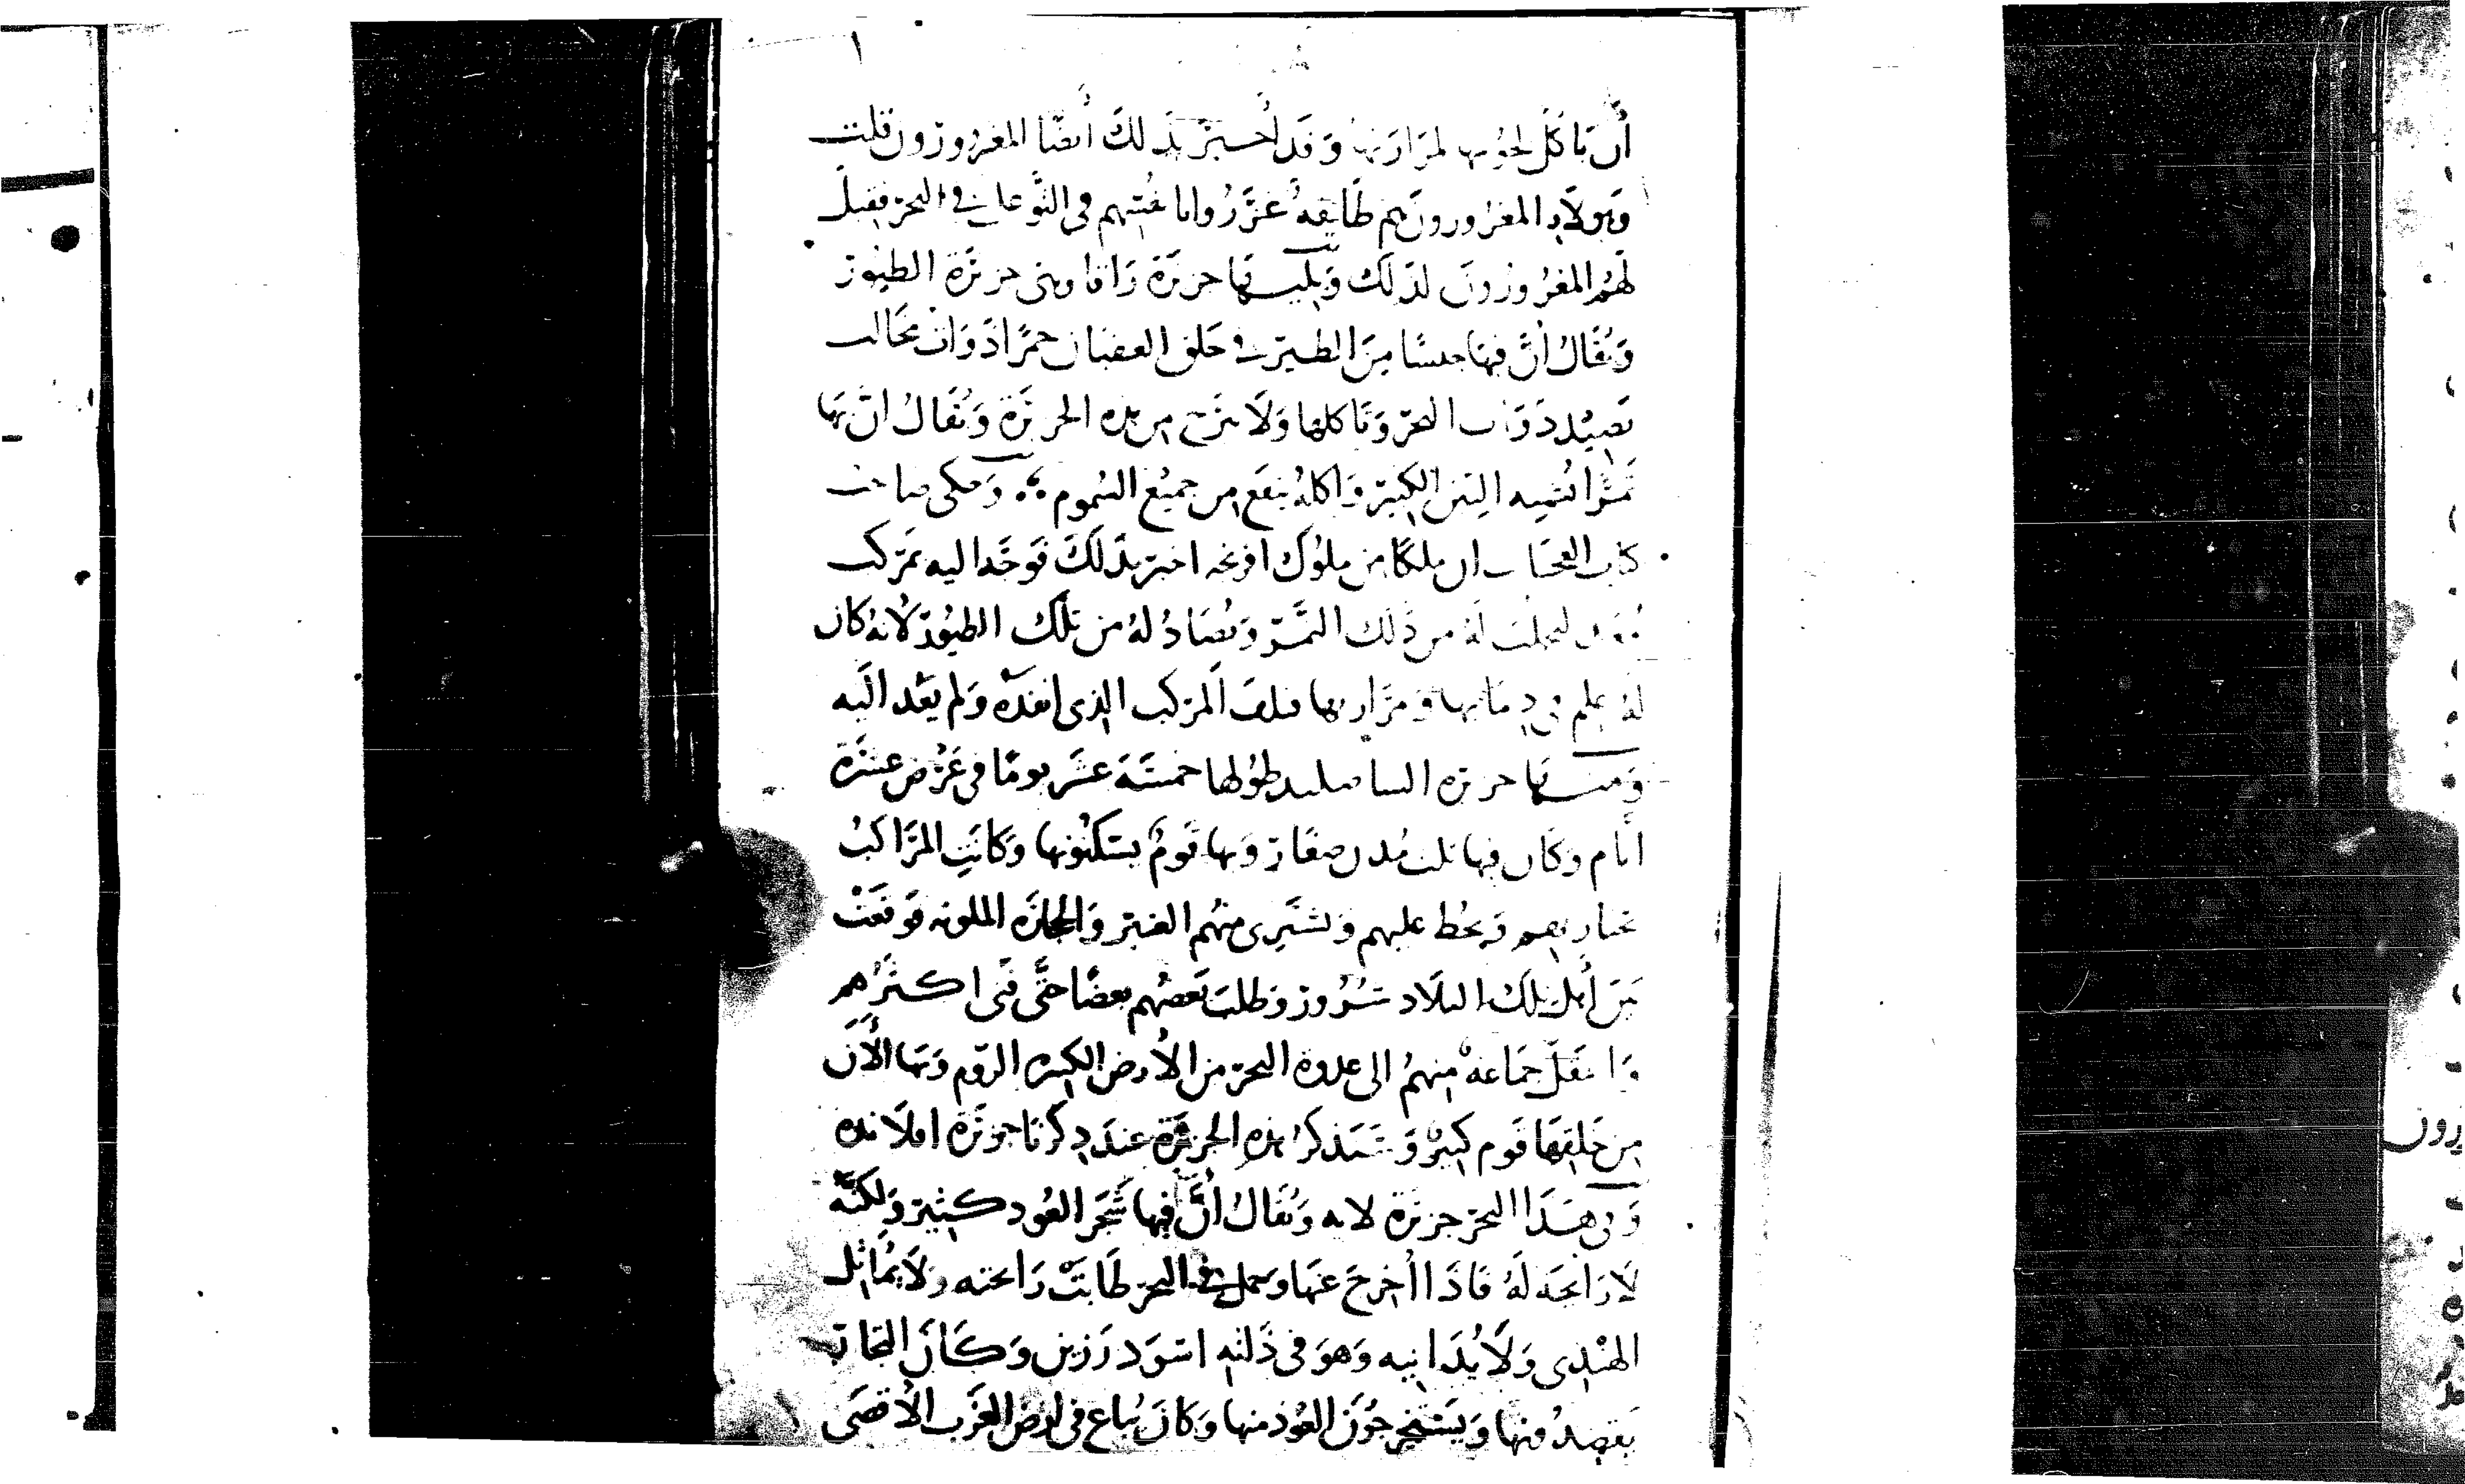 أن تأكل لحومها لمرارتها وقد أخبر بذلك أيضا المغرورون قلت
وهولاء المغرورون هم طايفة غرروا بانفسهم في التوغل في البحر فقيل
لهم المغرورون لذلك ويليها جزيرة راقا وهي جزيرة الطيور
ويقال أن فيها جنسا من الطير في خلق العقبان حمرا ذوات مخالب
تصيد دواب البحر وتاكلها ولا تبرح من هذه الجزيرة ويقال ان بها
ثمرا يشبه التين الكبير واكله ينفع من جميع السموم وحكى صاحب
كتاب العجايب ان ملكا من ملوك افرنجه اخبر بذلك فوجه اليه بمركب
ليجلب له من ذلك الثمر ويصاد له من تلك الطيور لانه كان
له علم في دمائها ومرارتها فتلف المركب الذي انفذه ولم يعد اليه
ومنها جزيرة الساصليد طولها خمسة عشر يوما في عرض عشرة
أيام وكان فيها ثلث مدن صغار وبها قوم يسكنونها وكانت المراكب
تجتاز بهم وتحط عليهم وتشتري منهم العنبر والحجارة الملونه فوقعت
بين أهل تلك البلاد شرور وطلب بعضهم بعضا حتى فنى اكثرهم
وانتقل جماعة منهم الى عدوة البحر من الأرض الكبيرة الروم وبها الأن
من خلقها قوم كبير وسنذكر هذه الجزيرة عند ذكرنا جزيرة افلانده
وفي هذا البحر جزيرة لاقه ويقال أن فيها شجر العود كثير ولكنه
لا رائحه له فاذا أخرج عنها وحمل في البحر طابت رائحته ولا يماثل
الهندى ولا يدانيه وهو في ذاته اسود رزين وكان التجار
يقصدونها ويستخرجون العود منها وكان يباع في ارض الغرب الأقصى